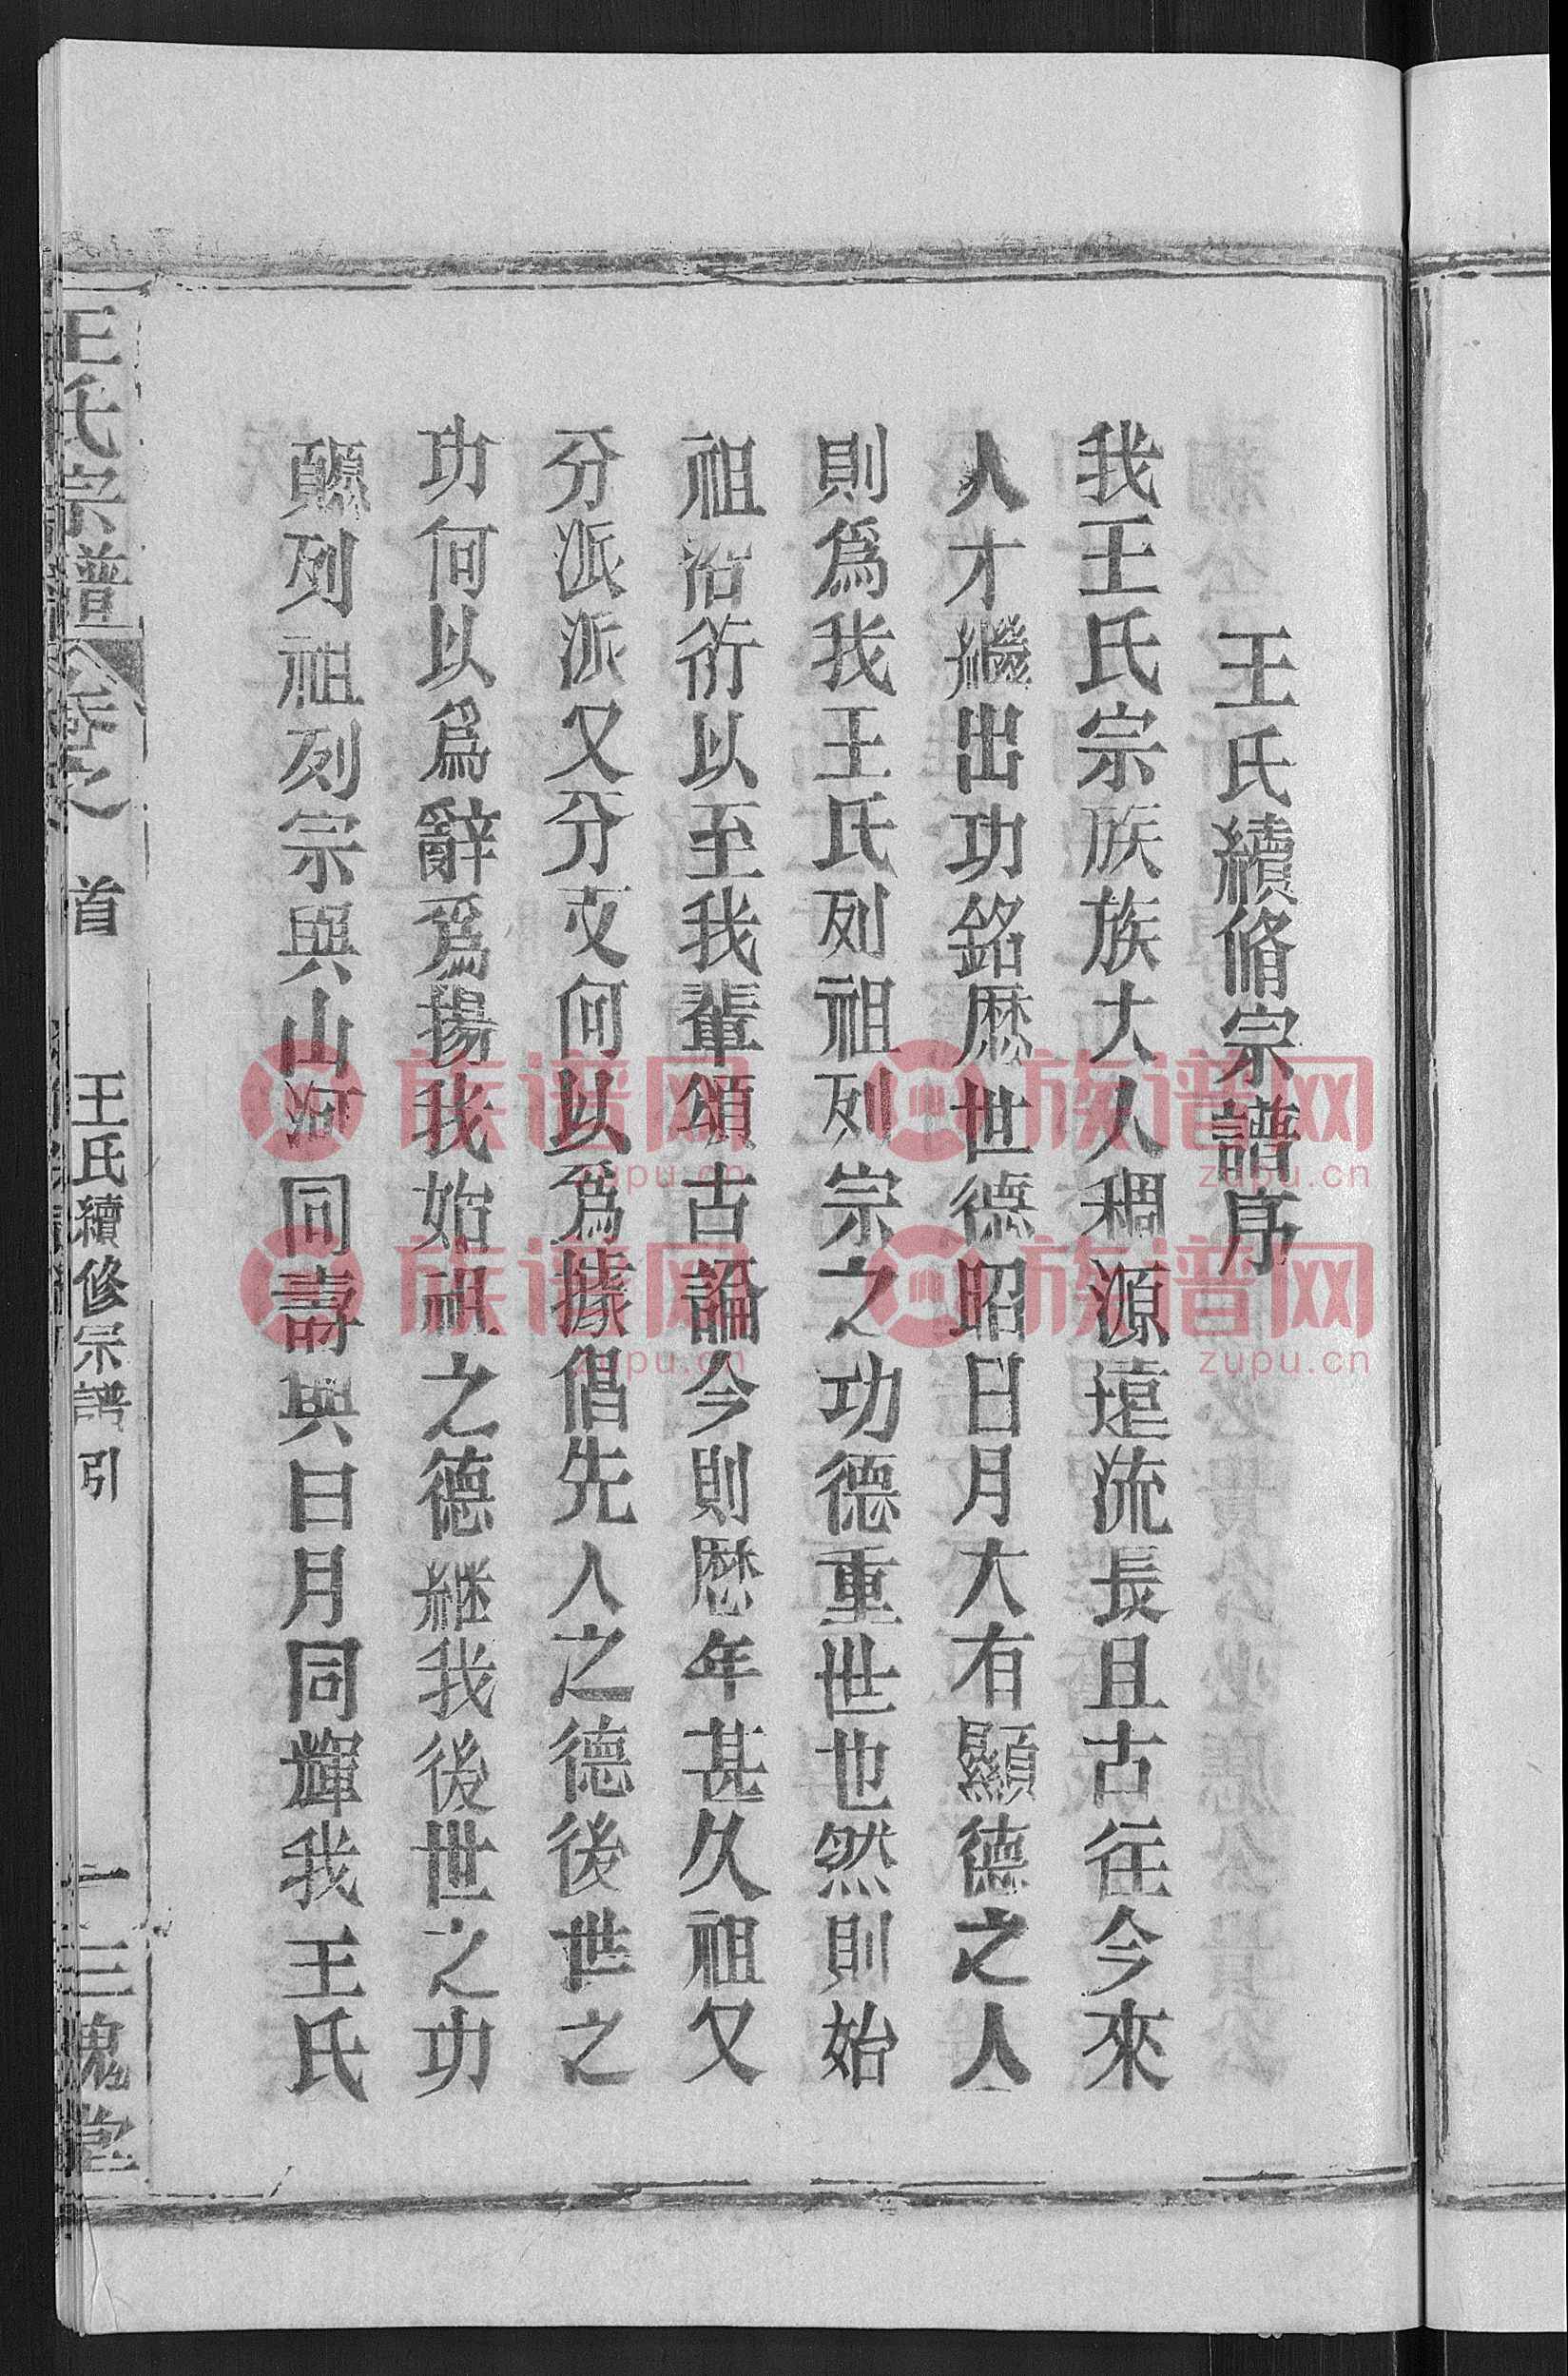 王氏續脩宗譜序
我王氏宗族族大人稠源遠流長且古往今來
人才繼出功銘歴世德昭日月大有顯德之人
則爲我王氏列祖列宗之功德重世也然則始
祖沿衍以至我輩頌古論今則歴年甚久祖又
分派派又分支何以爲據倡先人之德後世之
功何以爲辭爲揚我始祖之德継我後世之功
願列祖列宗與山河同壽與日月同輝我王氏
王氏宗譜
卷之首
王氏續修宗譜引
一
三槐堂
族谱网
zupu.cn
族谱网
zupu.cn
族谱网
zupu.cn
族谱网
zupu.cn